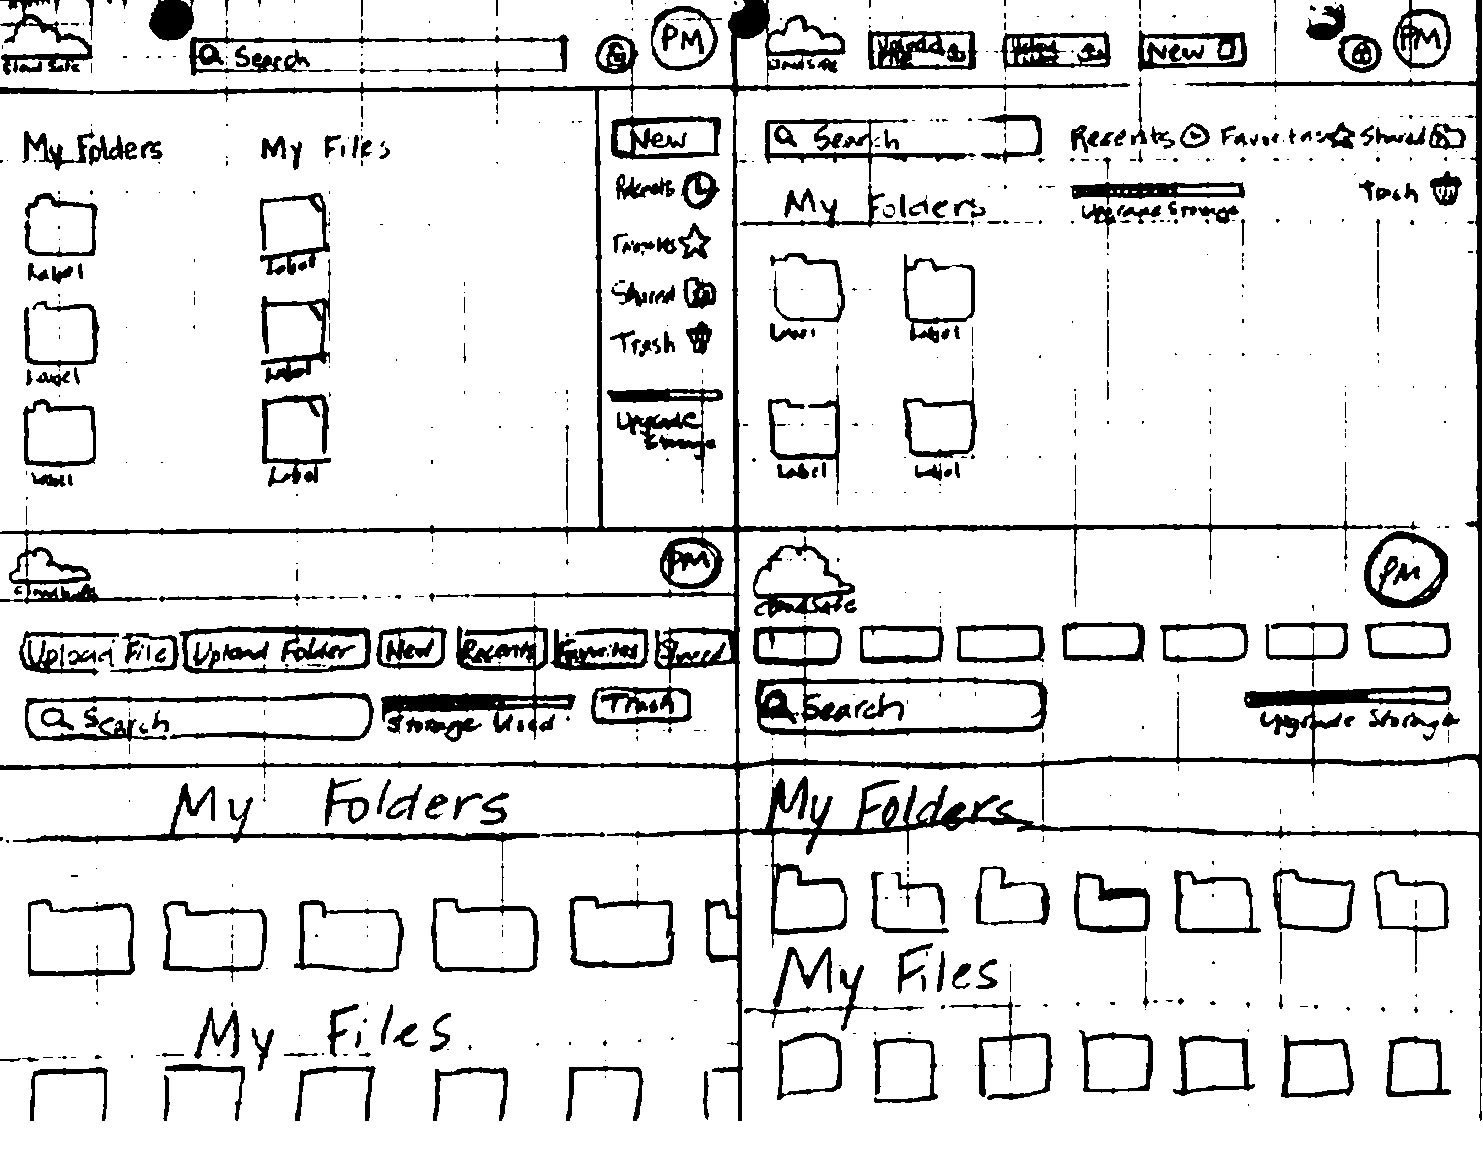 Cloud Safe
Search
PM
My Folders
My Files
New
Recents
Label
Label
Favorites
Shared
Label
Label
Trash
Label
Label
Upgrade
Storage
Cloud Safe
Upload
File
Upload
New
PM
Search
Recents
Favorites
Shared
My Folders
Upgrade Storage
Trash
Label
Label
Label
Label
PM
Upload File
Upload Folder
New
Recents
Favorites
Shared
Search
Storage Used
Trash
My Folders
My Files
Cloud Safe
PM
Search
Upgrade Storage
My Folders
My Files